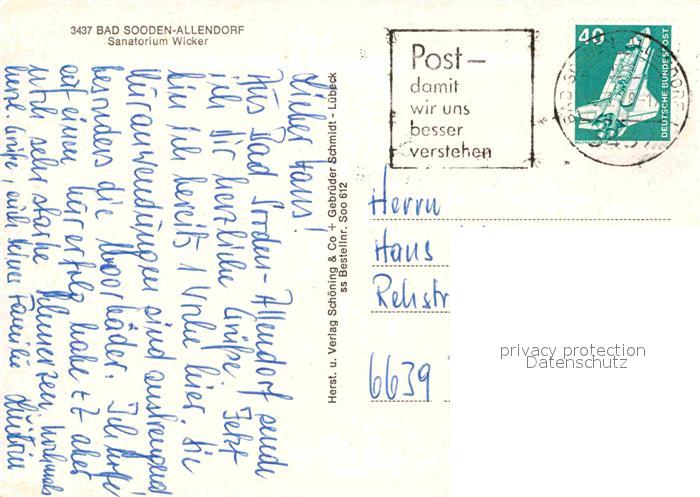 3437 BAD SOODEN-ALLENDORF
Sanatorium Wicker
Lieber Hans!
Aus Bad Sooden-Allendorf sende
ich Dir herzliche Grüße. Jetzt
bin ich bereits 1 Woche hier. Die
Kuranwendungen sind anstrengend
besonders die Moorbäder. Ich hoffe
auf einen Kurerfolg, habe z.Z. aber
noch sehr starke Schmerzen. Nochmals
herzl. Grüße, auch Deiner Familie
Herst. u. Verlag Schöning & Co + Gebrüder Schmidt - Lübeck
ss Bestellnr. Soo 612
Post-
damit
wir uns
besser
verstehen
40
DEUTSCHE BUNDESPOST
Herrn
Hans
Rehstr
6639
privacy protection
Datenschutz